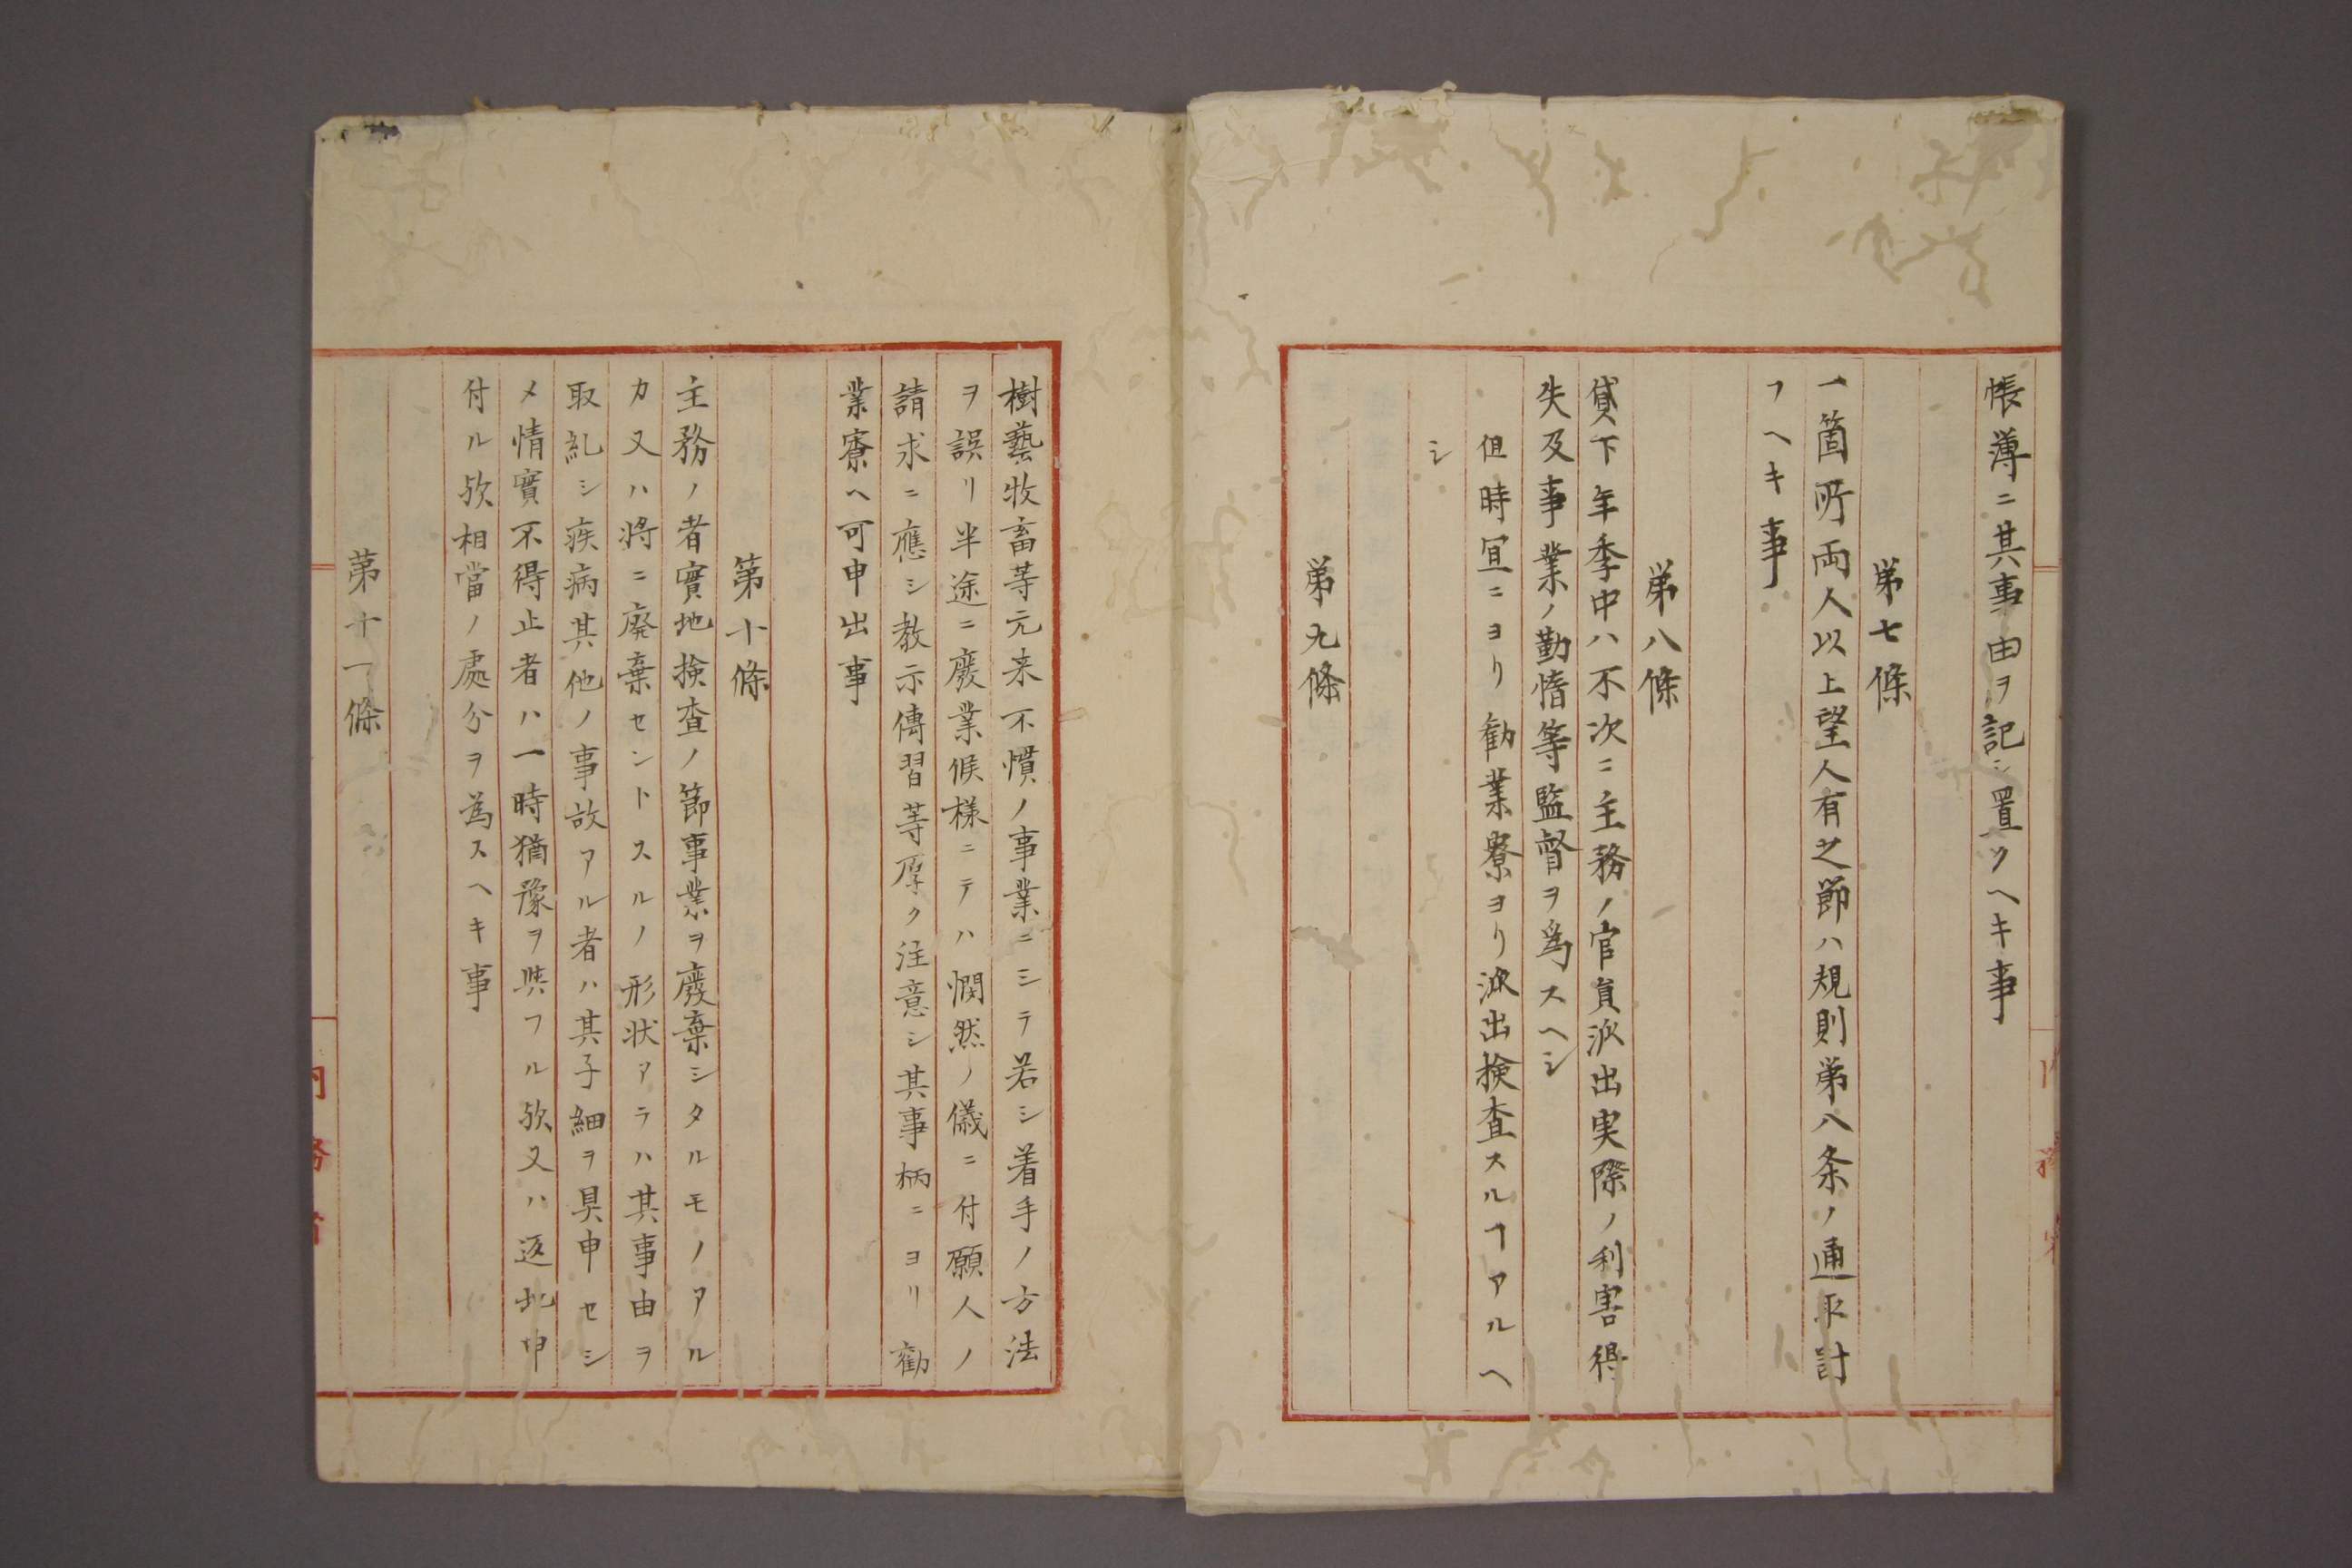 帳薄ニ其事由ヲ記シ置クヘキ事
第七條
一箇所両人以上望人有之節ハ規則第八条ノ通取計
フヘキ事
第八條
貸下年季中ハ不次ニ主務ノ官員派出実際ノ利害得
失及事業ノ勤惰等監督ヲ為スヘシ
但時宜ニヨリ勧業寮ヨリ派出検査スルヿアルヘ
シ
第九條
樹藝牧畜等元来不慣ノ事業ニシテ若シ着手ノ方法
ヲ誤リ半途ニ廢業候様ニテハ憫然ノ儀ニ付願人ノ
請求ニ應シ教示傳習等厚ク注意シ其事柄ニヨリ勸
業寮ヘ可申出事
第十條
主務ノ者實地検査ノ節事業ヲ廢棄シタルモノアル
カ又ハ将ニ廢棄セントスルノ形状アラハ其事由ヲ
取糺シ疾病其他ノ事故アル者ハ其子細ヲ具申セシ
メ情實不得止者ハ一時猶豫ヲ與フル歟又ハ返地申
付ル歟相當ノ處分ヲ為スヘキ事
第十一條
内務省